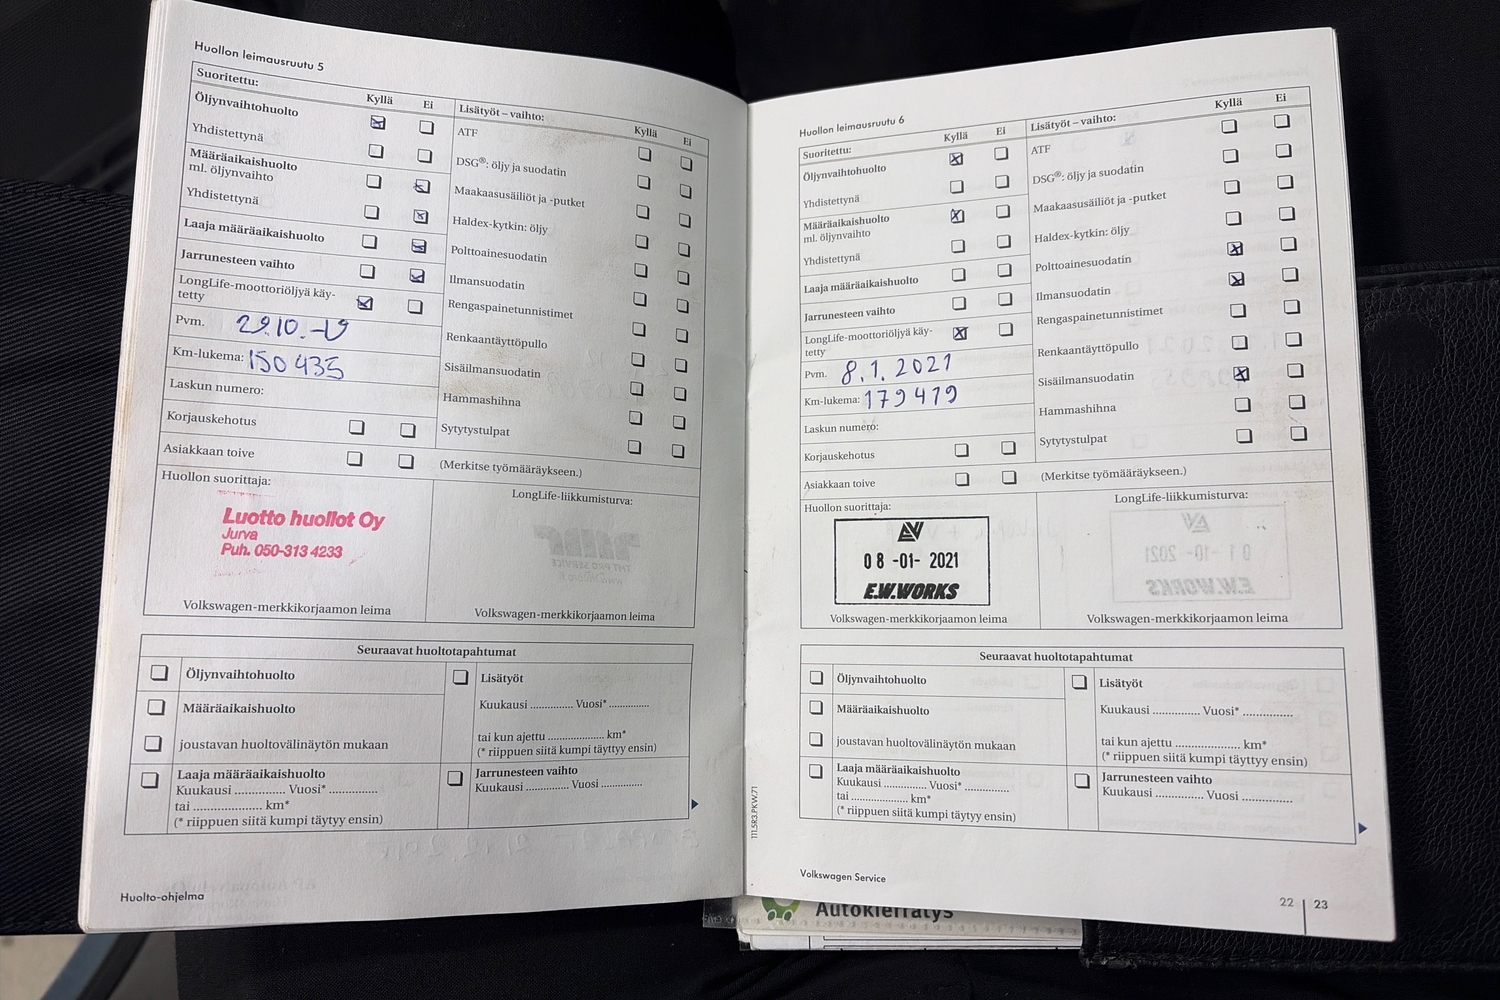 Huollon leimausruutu 5
Suoritettu:
Kyllä Ei
Öljynvaihtohuolto
Yhdistettynä
Määräaikaishuolto
ml. öljynvaihto
Yhdistettynä
Laaja määräaikaishuolto
Jarrunesteen vaihto
LongLife-moottoriöljyä käy-
tetty
Pvm. 29.10.-19
Km-lukema: 150 435
Laskun numero:
Korjauskehotus
Asiakkaan toive
Lisätyöt – vaihto:
Kyllä Ei
ATF
DSG®: öljy ja suodatin
Maakaasusäiliöt ja -putket
Haldex-kytkin: öljy
Polttoainesuodatin
Ilmansuodatin
Rengaspainetunnistimet
Renkaantäyttöpullo
Sisäilmansuodatin
Hammashihna
Sytytystulpat
(Merkitse työmääräykseen.)
Huollon suorittaja:
Luotto huollot Oy
Jurva
Puh. 050-313 4233
Volkswagen-merkkikorjaamon leima
LongLife-liikkumisturva:
Volkswagen-merkkikorjaamon leima
Seuraavat huoltotapahtumat
Öljynvaihtohuolto
Määräaikaishuolto
joustavan huoltovälinäytön mukaan
Laaja määräaikaishuolto
Kuukausi .............. Vuosi* ..............
tai ...................... km*
(* riippuen siitä kumpi täytyy ensin)
Lisätyöt
Kuukausi .............. Vuosi* .............
tai kun ajettu .................... km*
(* riippuen siitä kumpi täyttyy ensin)
Jarrunesteen vaihto
Kuukausi .............. Vuosi ..............
Huolto-ohjelma
Huollon leimausruutu 6
Suoritettu:
Kyllä Ei
Öljynvaihtohuolto
Yhdistettynä
Määräaikaishuolto
ml. öljynvaihto
Yhdistettynä
Laaja määräaikaishuolto
Jarrunesteen vaihto
LongLife-moottoriöljyä käy-
tetty
Pvm. 8.1.2021
Km-lukema: 179 419
Laskun numero:
Korjauskehotus
Asiakkaan toive
Lisätyöt – vaihto:
Kyllä Ei
ATF
DSG®: öljy ja suodatin
Maakaasusäiliöt ja -putket
Haldex-kytkin: öljy
Polttoainesuodatin
Ilmansuodatin
Rengaspainetunnistimet
Renkaantäyttöpullo
Sisäilmansuodatin
Hammashihna
Sytytystulpat
(Merkitse työmääräykseen.)
Huollon suorittaja:
08 -01- 2021
E.W.WORKS
Volkswagen-merkkikorjaamon leima
LongLife-liikkumisturva:
Volkswagen-merkkikorjaamon leima
Seuraavat huoltotapahtumat
Öljynvaihtohuolto
Määräaikaishuolto
joustavan huoltovälinäytön mukaan
Laaja määräaikaishuolto
Kuukausi ............. Vuosi* .............
tai .................... km*
(* riippuen siitä kumpi täytyy ensin)
Lisätyöt
Kuukausi .............. Vuosi* ...............
tai kun ajettu .................... km*
(* riippuen siitä kumpi täyttyy ensin)
Jarrunesteen vaihto
Kuukausi .............. Vuosi ...............
111.5R3.PKW.71
Volkswagen Service
22 | 23
Autokierrätys